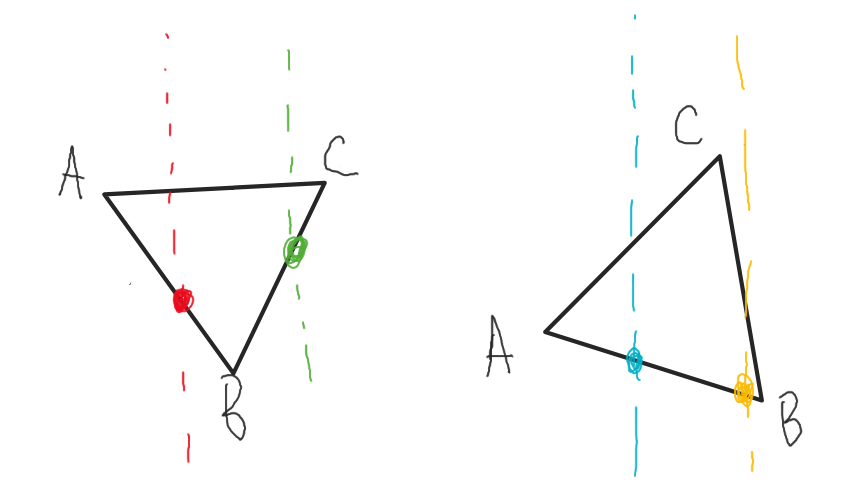 A
C
B
C
A
B